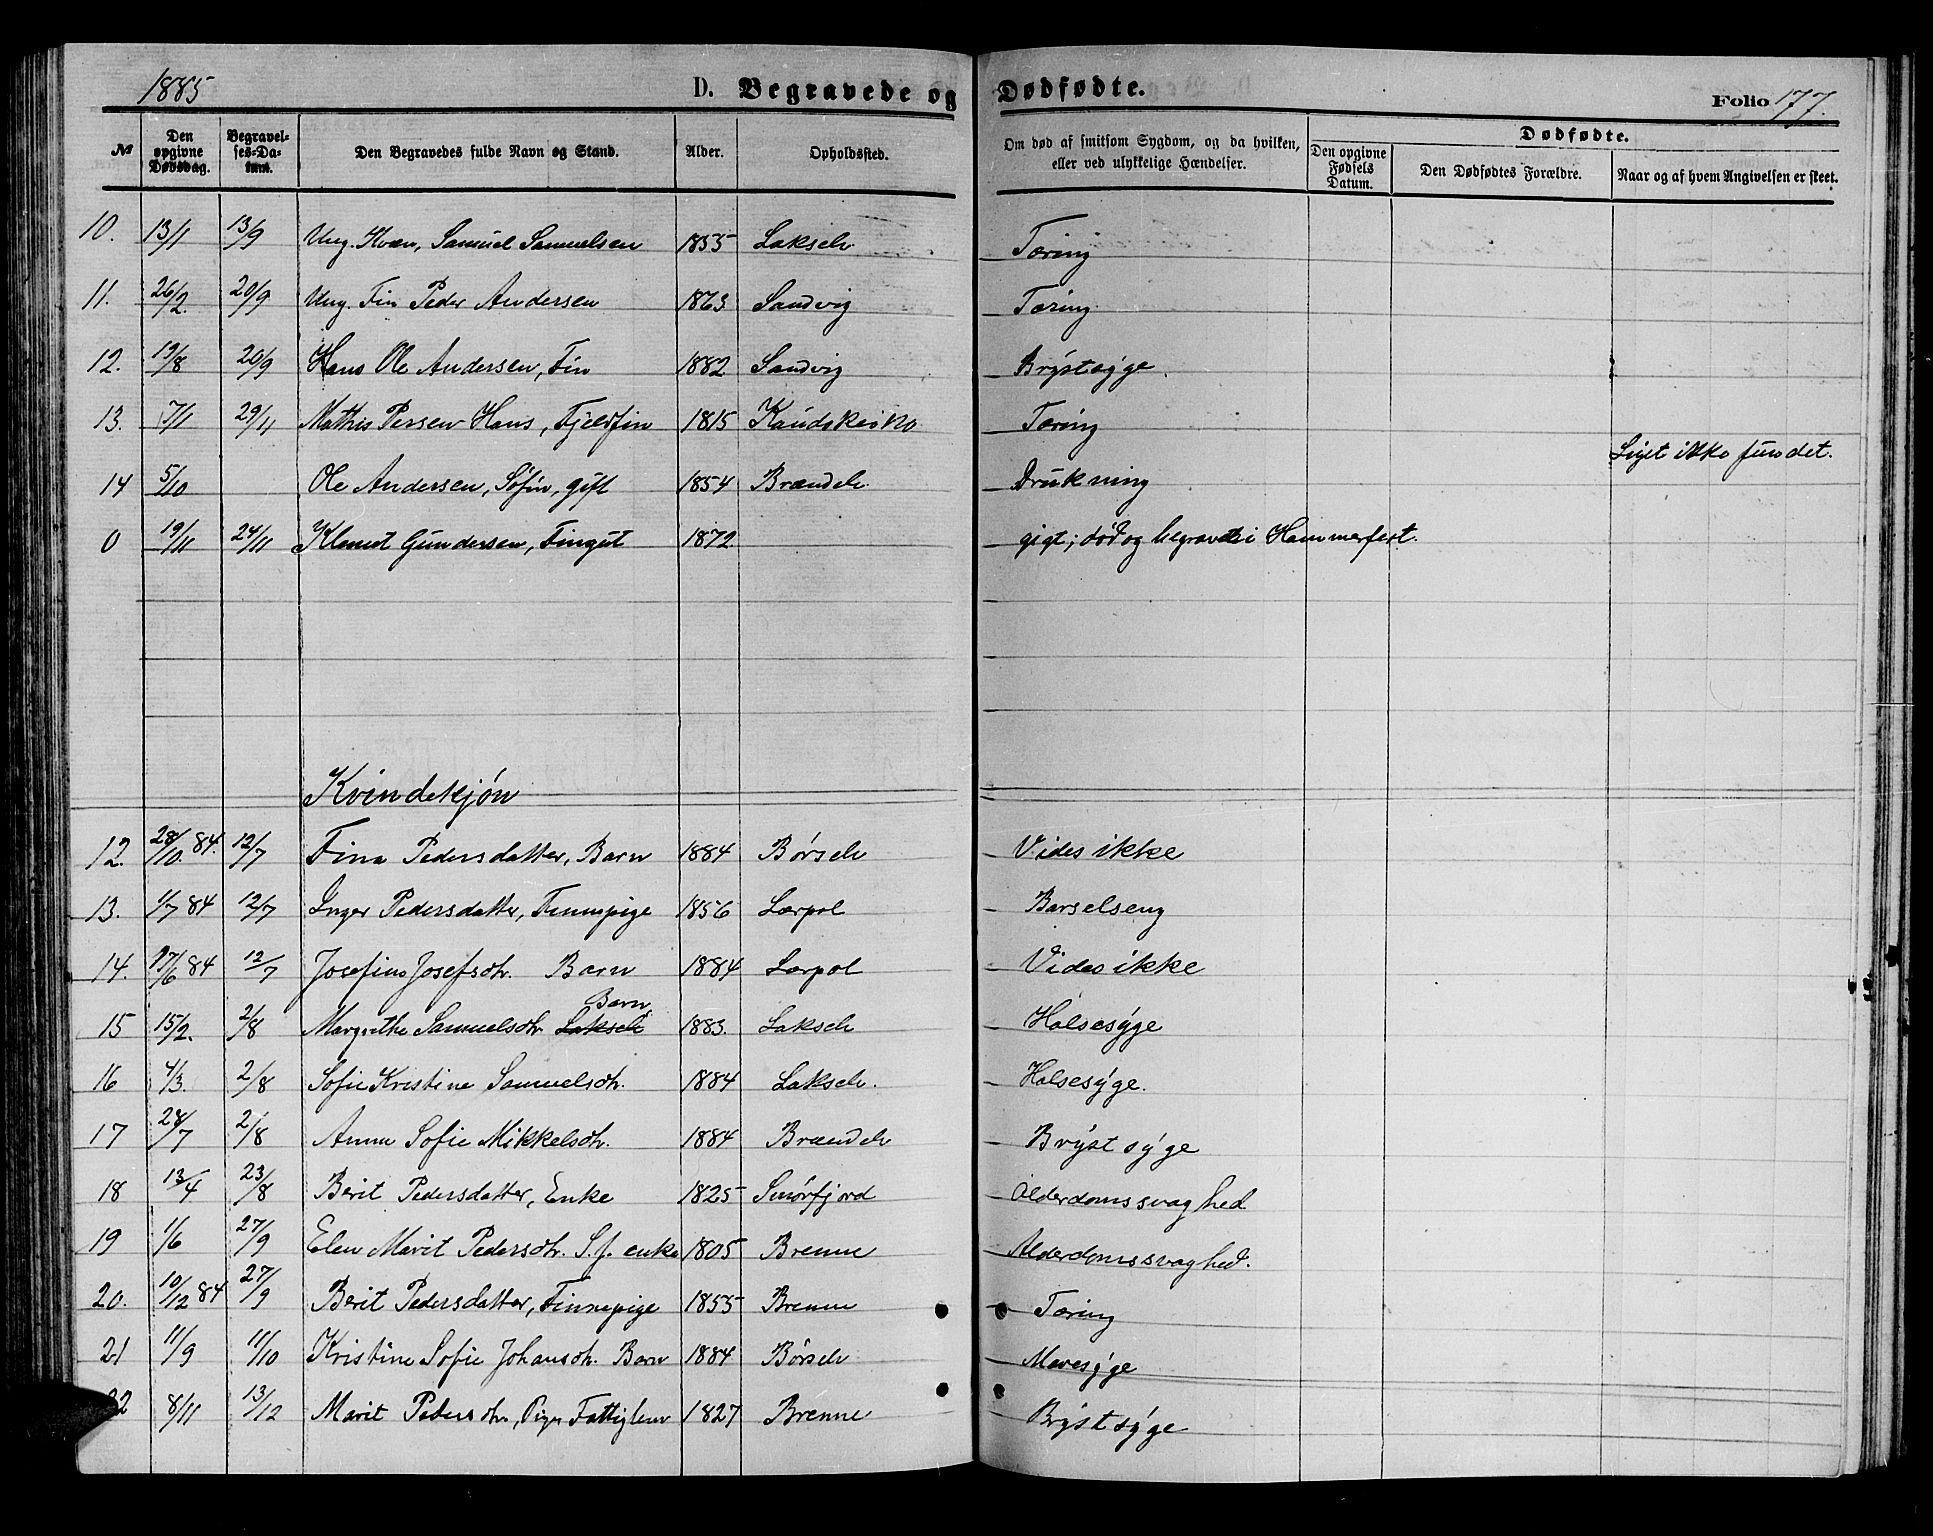 1885 D. Begravede og Dødfødte. Folio 177.
№ Den opgivne Dødsdag. Begravelses-Datum. Den Begravedes fulde Navn og Stand. Alder. Opholdssted. Om død af smitsom Sygdom, og da hvilken, eller ved ulykkelige Hændelser. Dødfødte. Den opgivne Fødsels Datum. Den Dødfødtes Forældre. Naar og af hvem Angivelsen er skeet.
10. 13/1 13/9 Ung. Kvæn, Samuel Samuelsen 1855 Lakselv Tæring
11. 26/2. 20/9 Ung. Fin Peder Andersen 1863 Sandvig Tæring
12. 19/8 20/9 Hans Ole Andersen, Fin 1882 Sandvig Brÿstsÿge.
13. 7/1 29/11 Mathis Persen Hans, Fjeldfin 1815 Kaudskeino Tæring
14 5/10 Ole Andersen, Søfin, gift 1854 Brændelv Drukning Liget ikke fundet.
0 19/11 24/11 Klemet Gundersen, Fingut 1872 gigt; død og begravet i Hammerfest.
Kvindekjøn
12. 28/10 84. 12/7 Fina Pedersdatter, Barn 1884 Børselv Vides ikke
13. 1/7 84 12/7 Inger Pedersdatter, Finnepige 1856 Lærpol Barselseng
14. 27/6 84 12/7 Josefine Josefsdtr. Barn 1884 Lærpol Vides ikke
15 15/2. 2/8 Margrethe Samuelsdtr. Barn 1883. Lakselv Halsesÿge
16 4/3. 2/8 Sofie Kristine Samuelsdtr. 1884 Lakselv. Halsesÿge.
17 28/7 2/8 Anna Sofie Mikkelsdtr. 1884 Brændelv Brÿstsÿge
18 13/4 23/8 Berit Pedersdatter, Enke 1825 Smørfjord Alderdomssvaghed
19 1/6 27/9 Elen Marit Pedersdtr. S.f. enke 1805 Brenne Alderdomssvaghed.
20. 10/12 84 27/9 Berit Pedersdatter, Finnepige 1855 Brenne Tæring
21 11/9 11/10 Kristine Sofie Johansdtr. Barn 1884 Børselv Mavesÿge
22 8/11 13/12 Marit Pedersdtr., Pige Fattiglem 1827 Brenne Brÿstsÿge